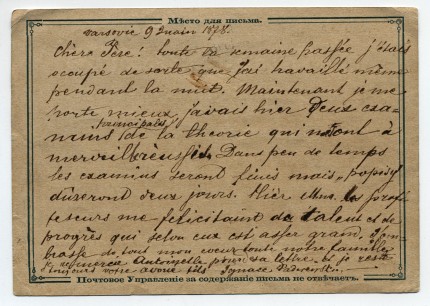 Мѣсто для письма.
Varsovie 9 Juin 1878.
Chère Père! toute la semaine passée j'étais
occupé de sorte que j'ai travaillé même
pendant la nuit. Maintenant je me
porte mieux, j'avais hier deux exa-
principals
mens de la theorie qui m'ont à
merveille Dans peu de temps
les examins seront finis mais,
dureront deux jours. Hier les prof
fesseurs me felicitaint de talent et de
progrès qui selon eux est assez grand. J'em-
brasse de tout mon coeur toute notre famille
je remercie Antoinette pour sa lettre et je reste
toujours votre fils Ignace Paderewski
Почтовое Управленіе за содержаніе письма не отвѣчаетъ.